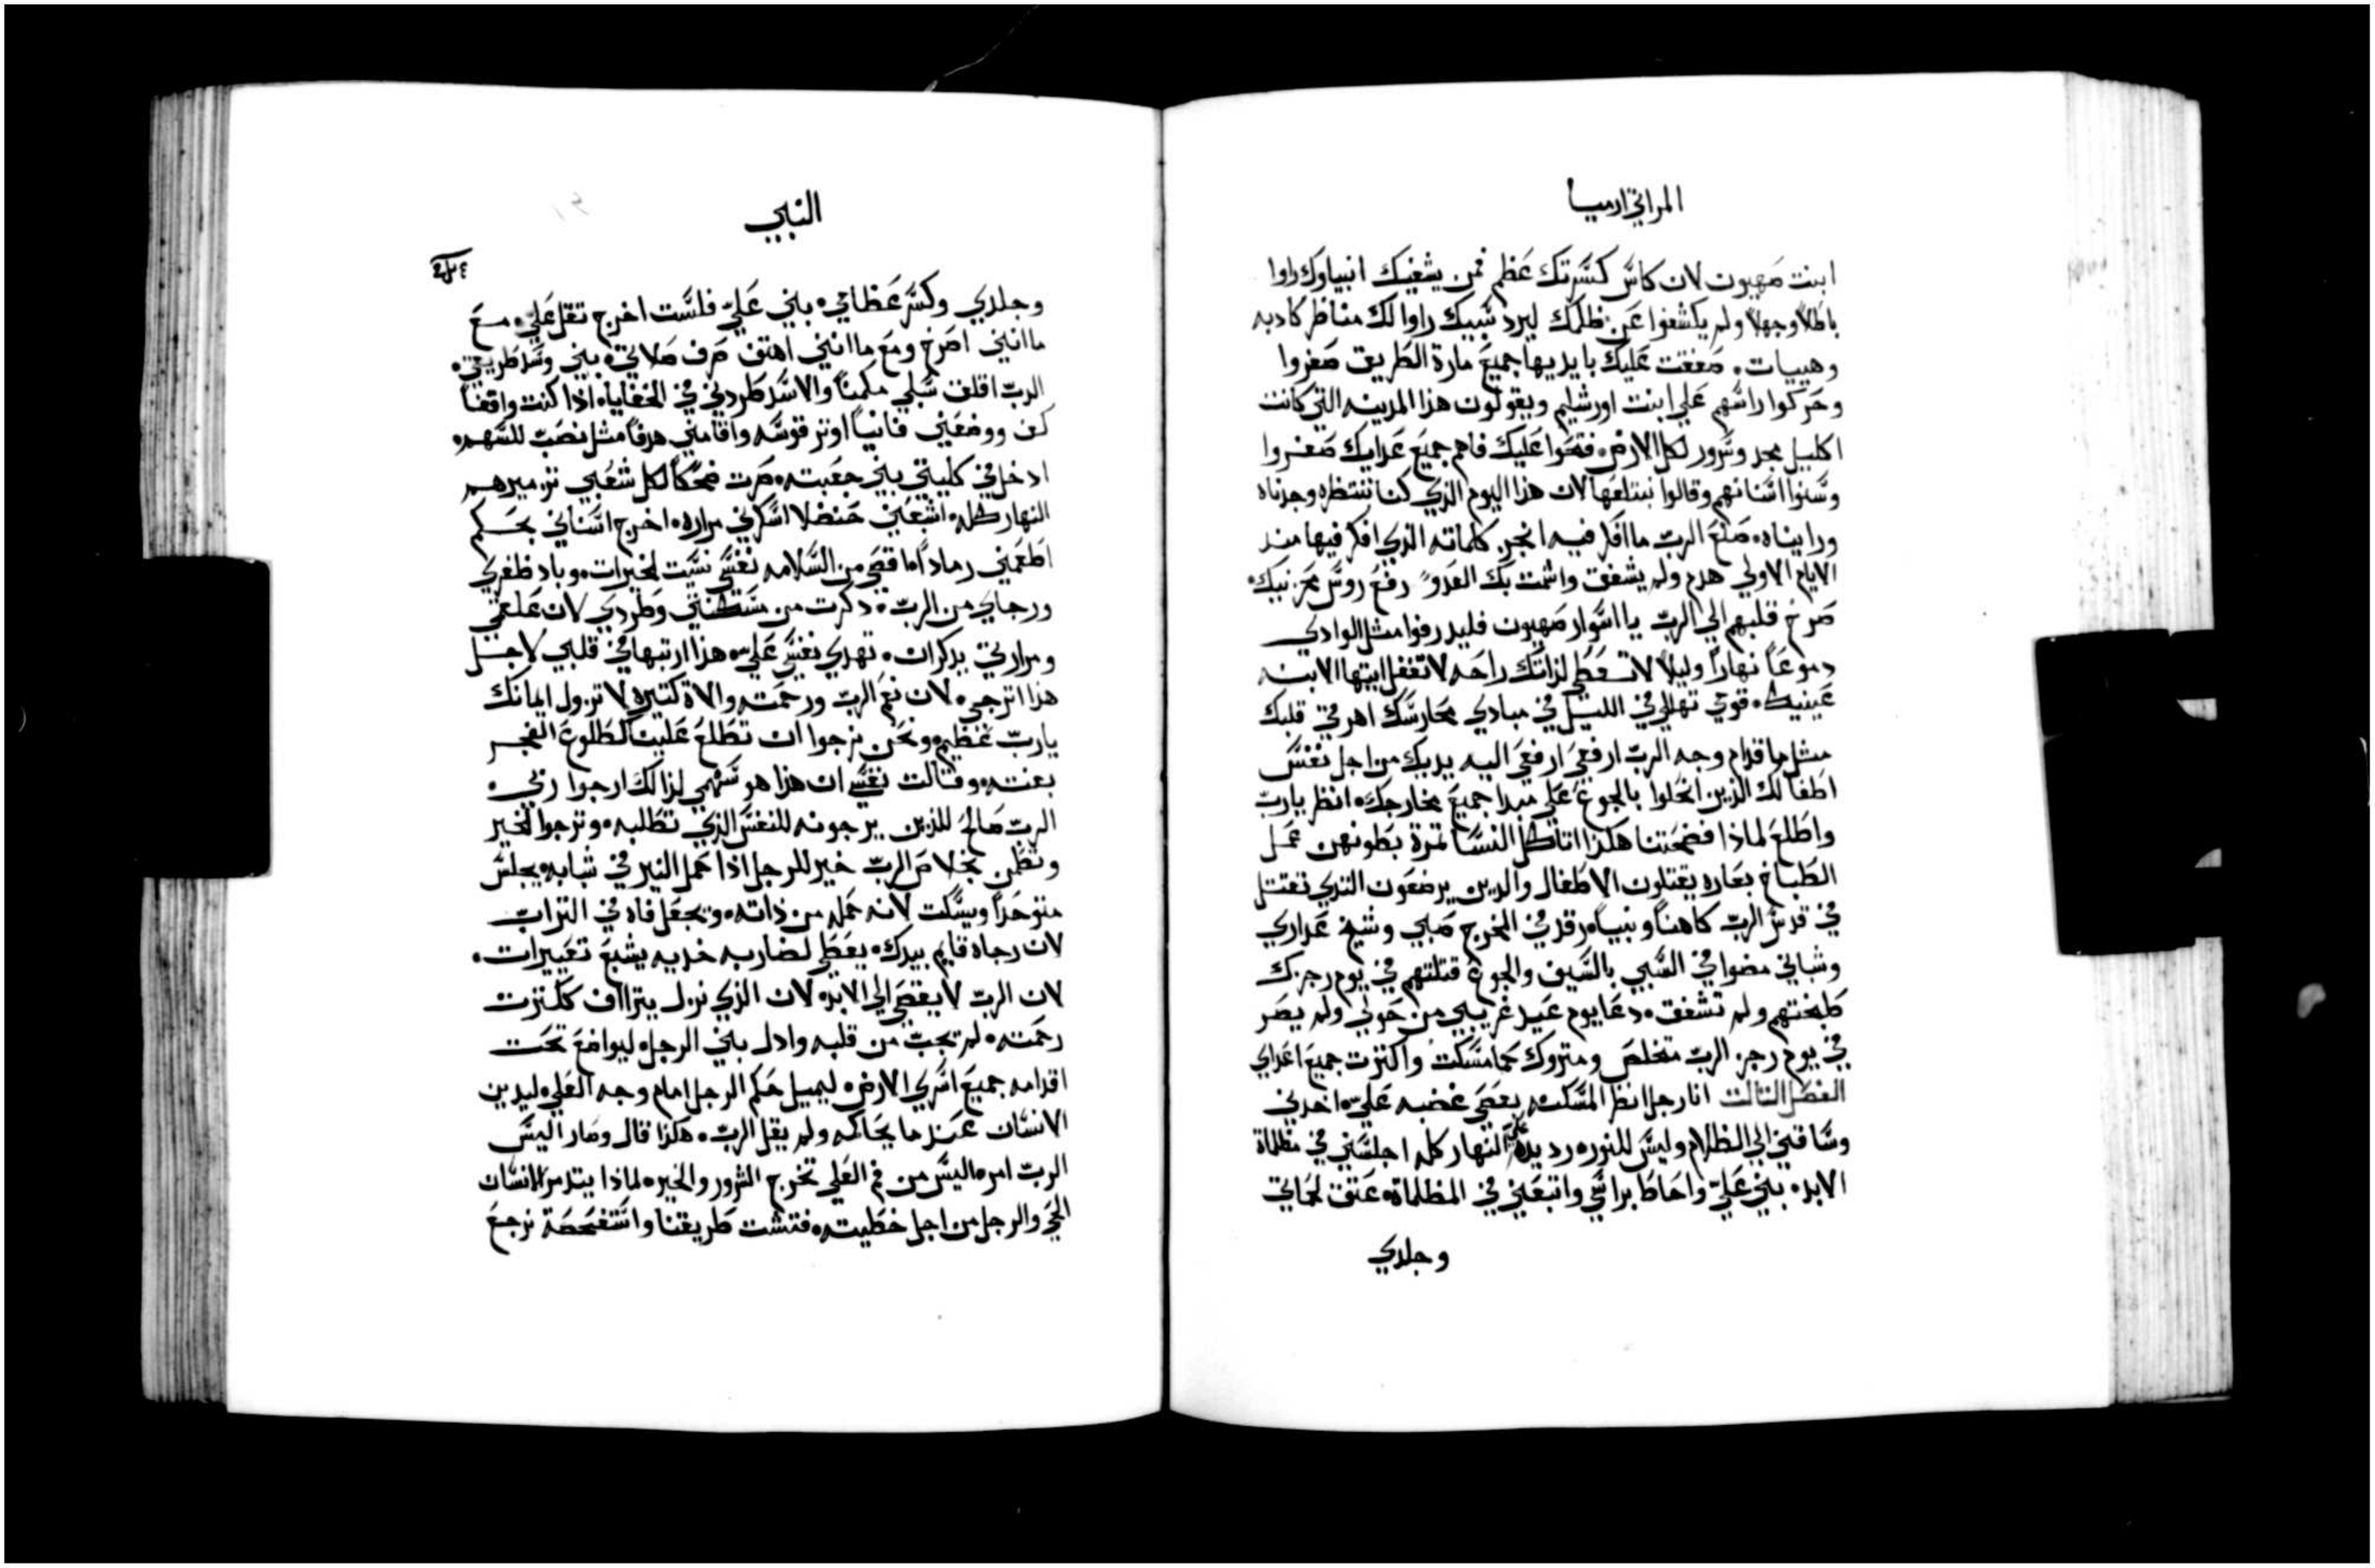 المراتي ارميا
ابنت صهيون لان كاس كسرتك عظم فمن يشفيك انبياوك راوا
باطلا وجهلا ولم يكشفوا عن ظلمك ليرد سبيك راوا لك مناظر كادبه
وهيبات. صفقت عليك بايديها جميع مارة الطريق صفروا
وحركوا راسهم علي ابنت اورشليم ويقولون هذا المدينه التي كانت
اكليل مجد وسرور لكل الارض. فتحوا عليك فاهم جميع عدايك صفروا
وسنوا اسنانهم وقالوا نبتلعها لان هذا اليوم الذي كنا ننتظره وجدناه
ورايناه. صنع الرب ما افكر فيه انجز كلماته الذي افكر فيها منذ
الايام الاولي هدم ولم يشفق واشمت بك العدو رفع روس محزنيك.
صرخ قلبهم الي الرب يا اسوار صهيون فليدرفوا مثل الوادي
دموعا نهارا وليلا لا تعطي لذاتك راحه لا تغفل ايتها الابنه
عينيك. قومي تهللي في الليل في مبادي محارسك اهرقي قلبك
مثل ما قدام وجه الرب ارفعي ارفعي اليه يديك من اجل نفس
اطفالك الذين انحلوا بالجوع علي مبدا جميع مخارجك. انظر يارب
واطلع لماذا فضحتنا هكذا اتاكل النسا ثمرة بطونهن عمل
الطباخ بعاره يقتلون الاطفال والدين يرضعون التدي تقتل
في قدس الرب كاهنا ونبيا. رقد في المخرج صبي وشيخ عداري
وشباني مضوا في السبي بالسيف والجوع قتلتهم في يوم رجزك
طبختهم ولم تشفق. دعا يوم عيد غريبي من حولي ولم يصر
في يوم رجز الرب متخلص ومتروك كما مسكت واكترت جميع اعداي
الفصل التالت انا رجل انظر المسكنه بعصي غضبه علي. اخدني
وساقني الي الظلام وليس للنور. رد يده علي النهار كله اجلسني في مظلماة
الابد. بني علي واحاط براسي واتبعني في المظلماة. عتق لحماتي
وجلدي
النبي
وجلدي وكسر عظامي. بني علي فلست اخرج تقل علي. مع
ما انني اصرخ ومع ما انني اهتف صرف صلاتي. بني وسد طريقي.
الرب اقلق سبلي مكمنا والاسد طردني في الخفايا. اذا كنت واقفا
كف ووضعني فانيا اوتر قوسه واقامني هدفا مثل نصب للسهم.
ادخل في كليتي بني جعبته. صرت ضحكا لكل شعبي تزميرهم
النهار كله. اشبعني حنضلا اسكرني مراره. اخرج اسناني بحسكم
اطعمني رمادا اما قصي من السلامه نفسي نسيت الخيرات. وباد ظفري
ورجاي من الرب. دكرت من مسكنتي وطردي لان علقمي
ومرارتي يدكران. تهدي نفسي علي. هذا ارتبها في قلبي لاجل
هذا اترجي. لان نعم الرب ورحمته والاة كتيره لا تزول ايمانك
يارب عظيم. ونحن نرجوا ان تطلع علينا كطلوع الفجر
بغته. وقالت نفسي ان هذا هو سهمي لذالك ارجوا ربي.
الرب صالح للذين يرجونه للنفس الذي تطلبه. وترجوا الخير
وتطمن بخلاص الرب خير للرجل اذا حمل النير في شبابه. يجلس
متوحدا ويسكت لانه حمله من ذاته. ويجعل فاه في التراب
لان رجاه قايم بيدك. يعطي لضاربه خديه يشبع تعييرات.
لان الرب لا يقصي الي الابد. لان الذي نزل يتراف ككترت
رحمته. لم تجب من قلبه وادل بني الرجل. ليواضع تحت
اقدامه جميع اسري الارض. ليميل حكم الرجل امام وجه العلي. ليدين
الانسان عند ما يحاكمه ولم يقل الرب. هكذا قال وصار اليس
الرب امر. اليس من فم العلي تخرج الشرور والخير. لماذا يتدمر الانسان
الحي والرجل من اجل خطيته. فتشت طريقتنا واستفحصة نرجع